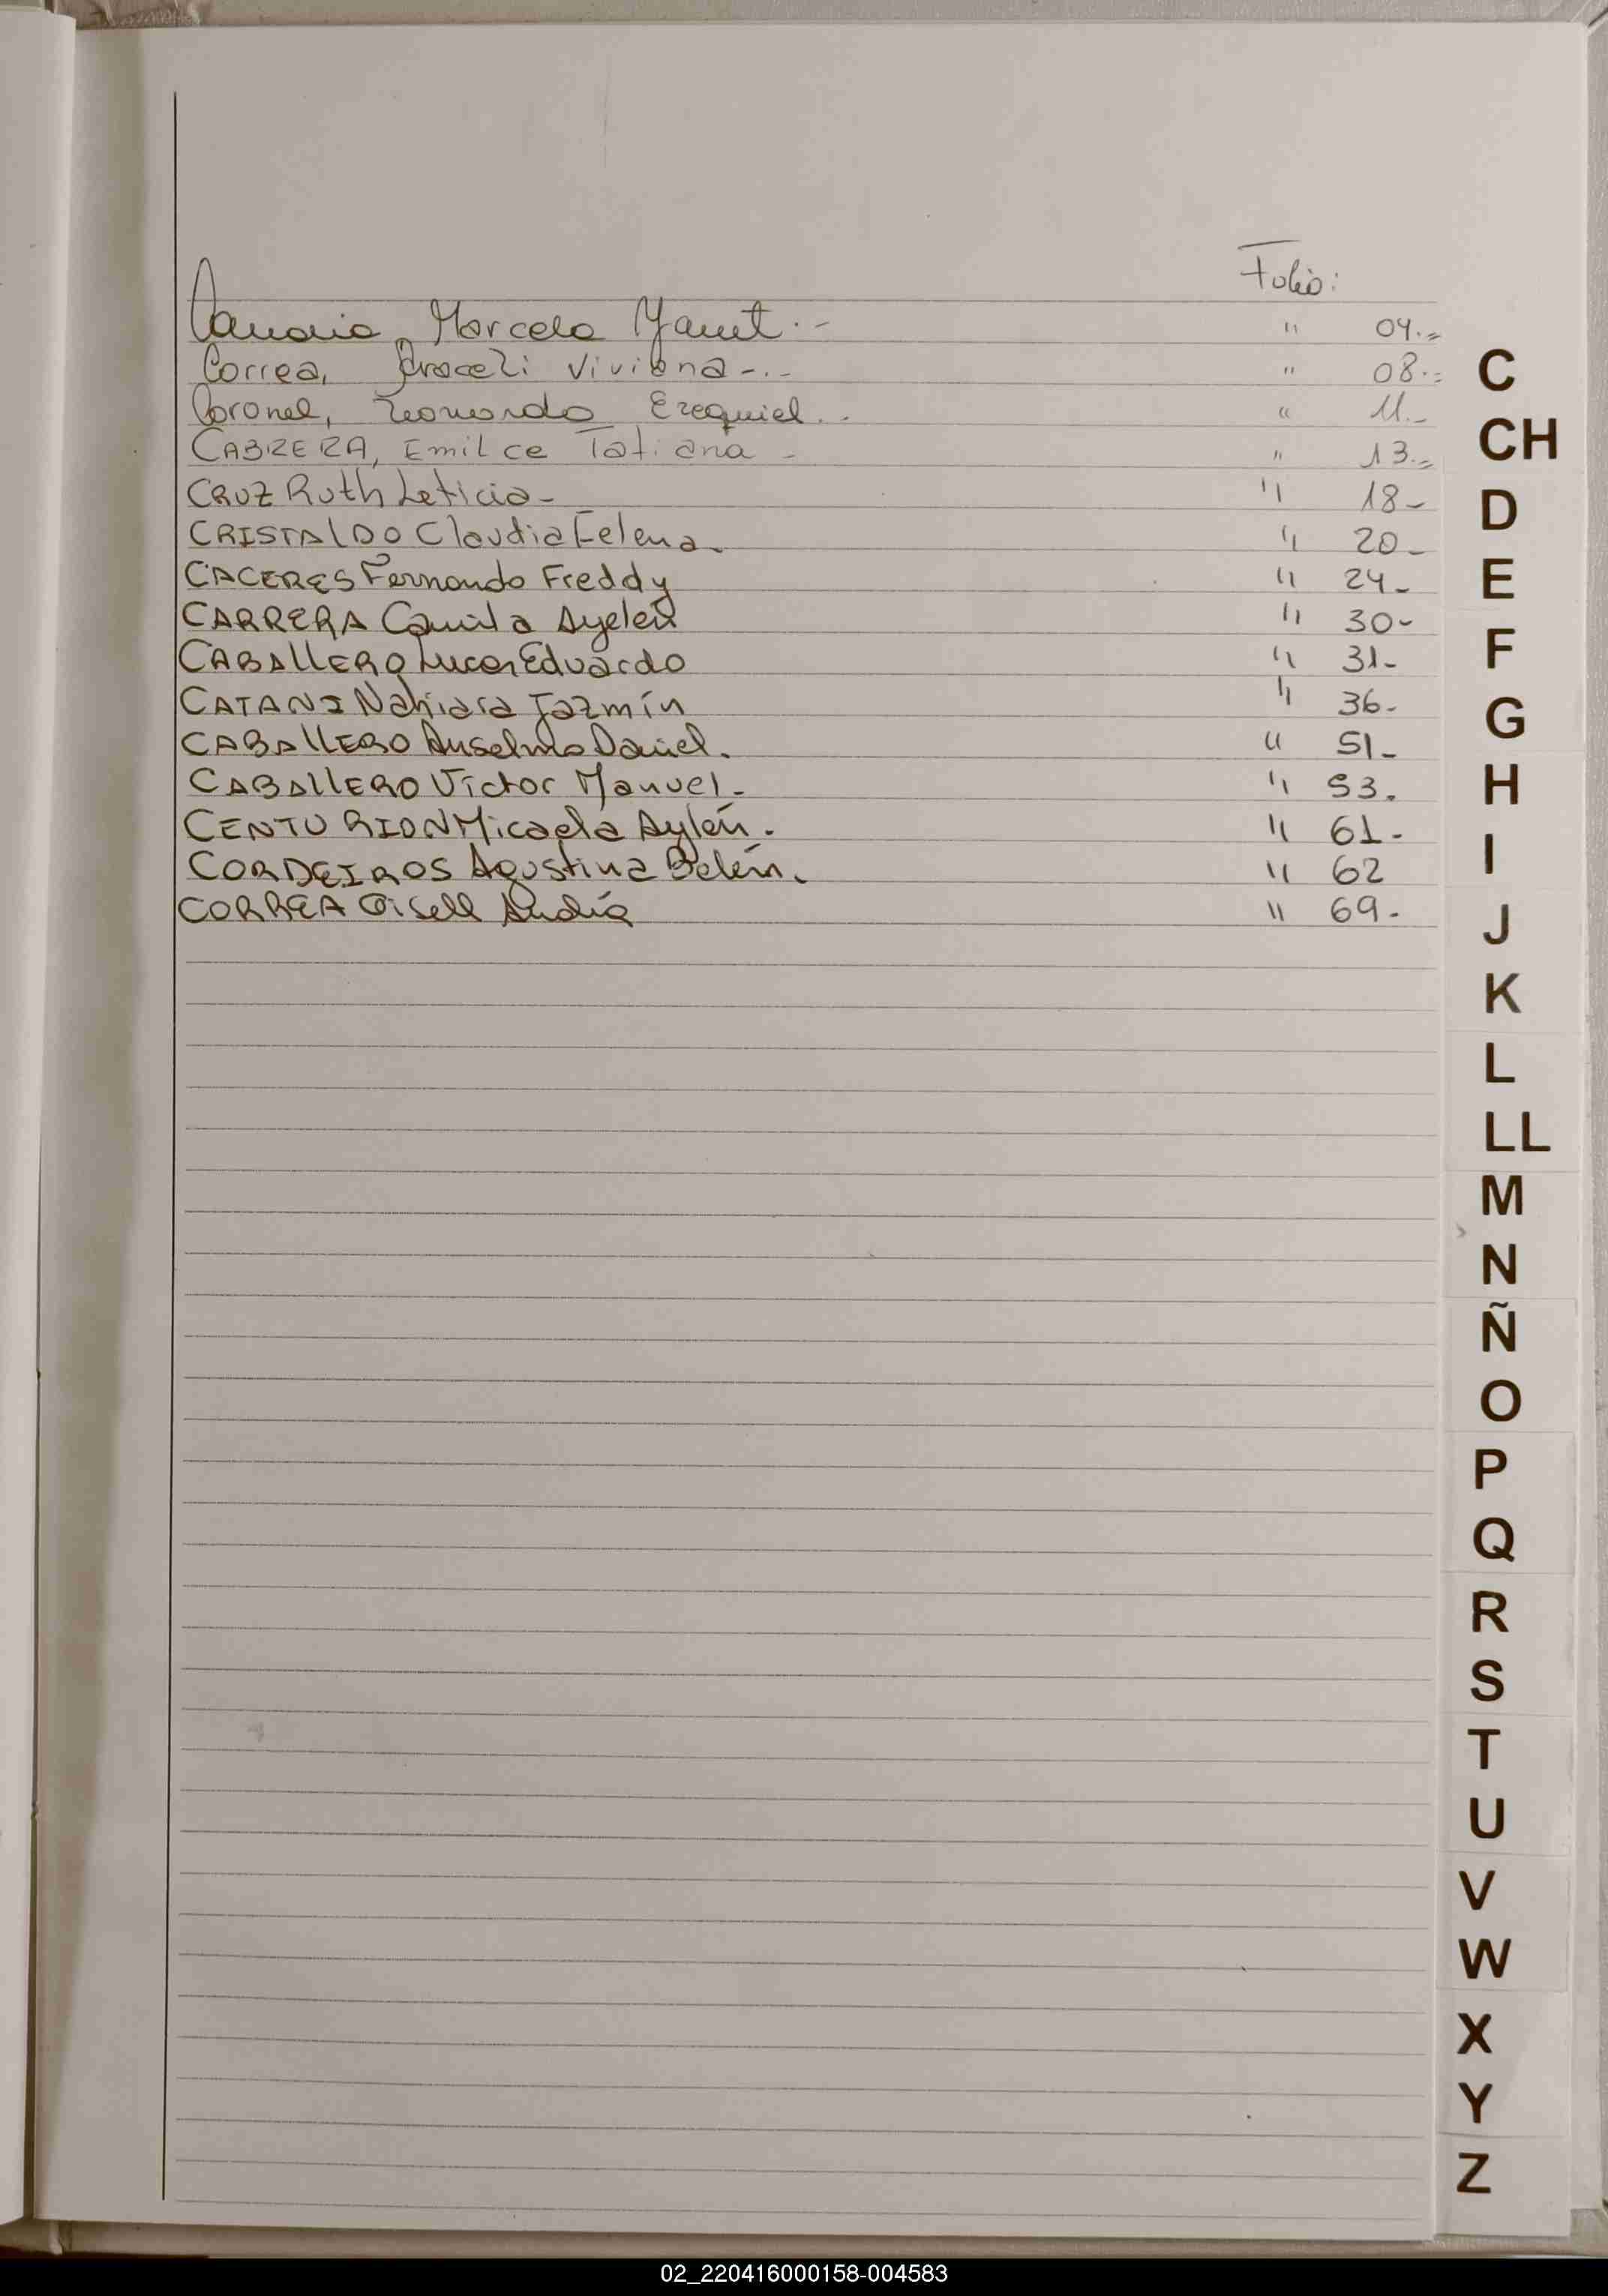 Folio:
Marcela Yanet.- " 04.=
Correa, Araceli Viviana-.- " 08.=
Coronel, Leonardo Ezequiel.. " 11.-
CABRERA, Emilce Tatiana - " 13.=
CRUZ Ruth Leticia- " 18-
CRISTALDO Claudia Felena. " 20-
CACERES Fernando Freddy " 24-
CARRERA Camila Ayelén " 30-
CABALLERO Lucas Eduardo " 31-
CATANI Nahiara Jazmín " 36-
CABALLERO Anselmo Daniel. " 51-
CABALLERO Víctor Manuel- " 53.
CENTURION Micaela Aylén. " 61-
CORDEIROS Agostina Belén. " 62
CORREA Gisell " 69-
C
CH
D
E
F
G
H
I
J
K
L
LL
M
N
Ñ
O
P
Q
R
S
T
U
V
W
X
Y
Z
02_220416000158-004583